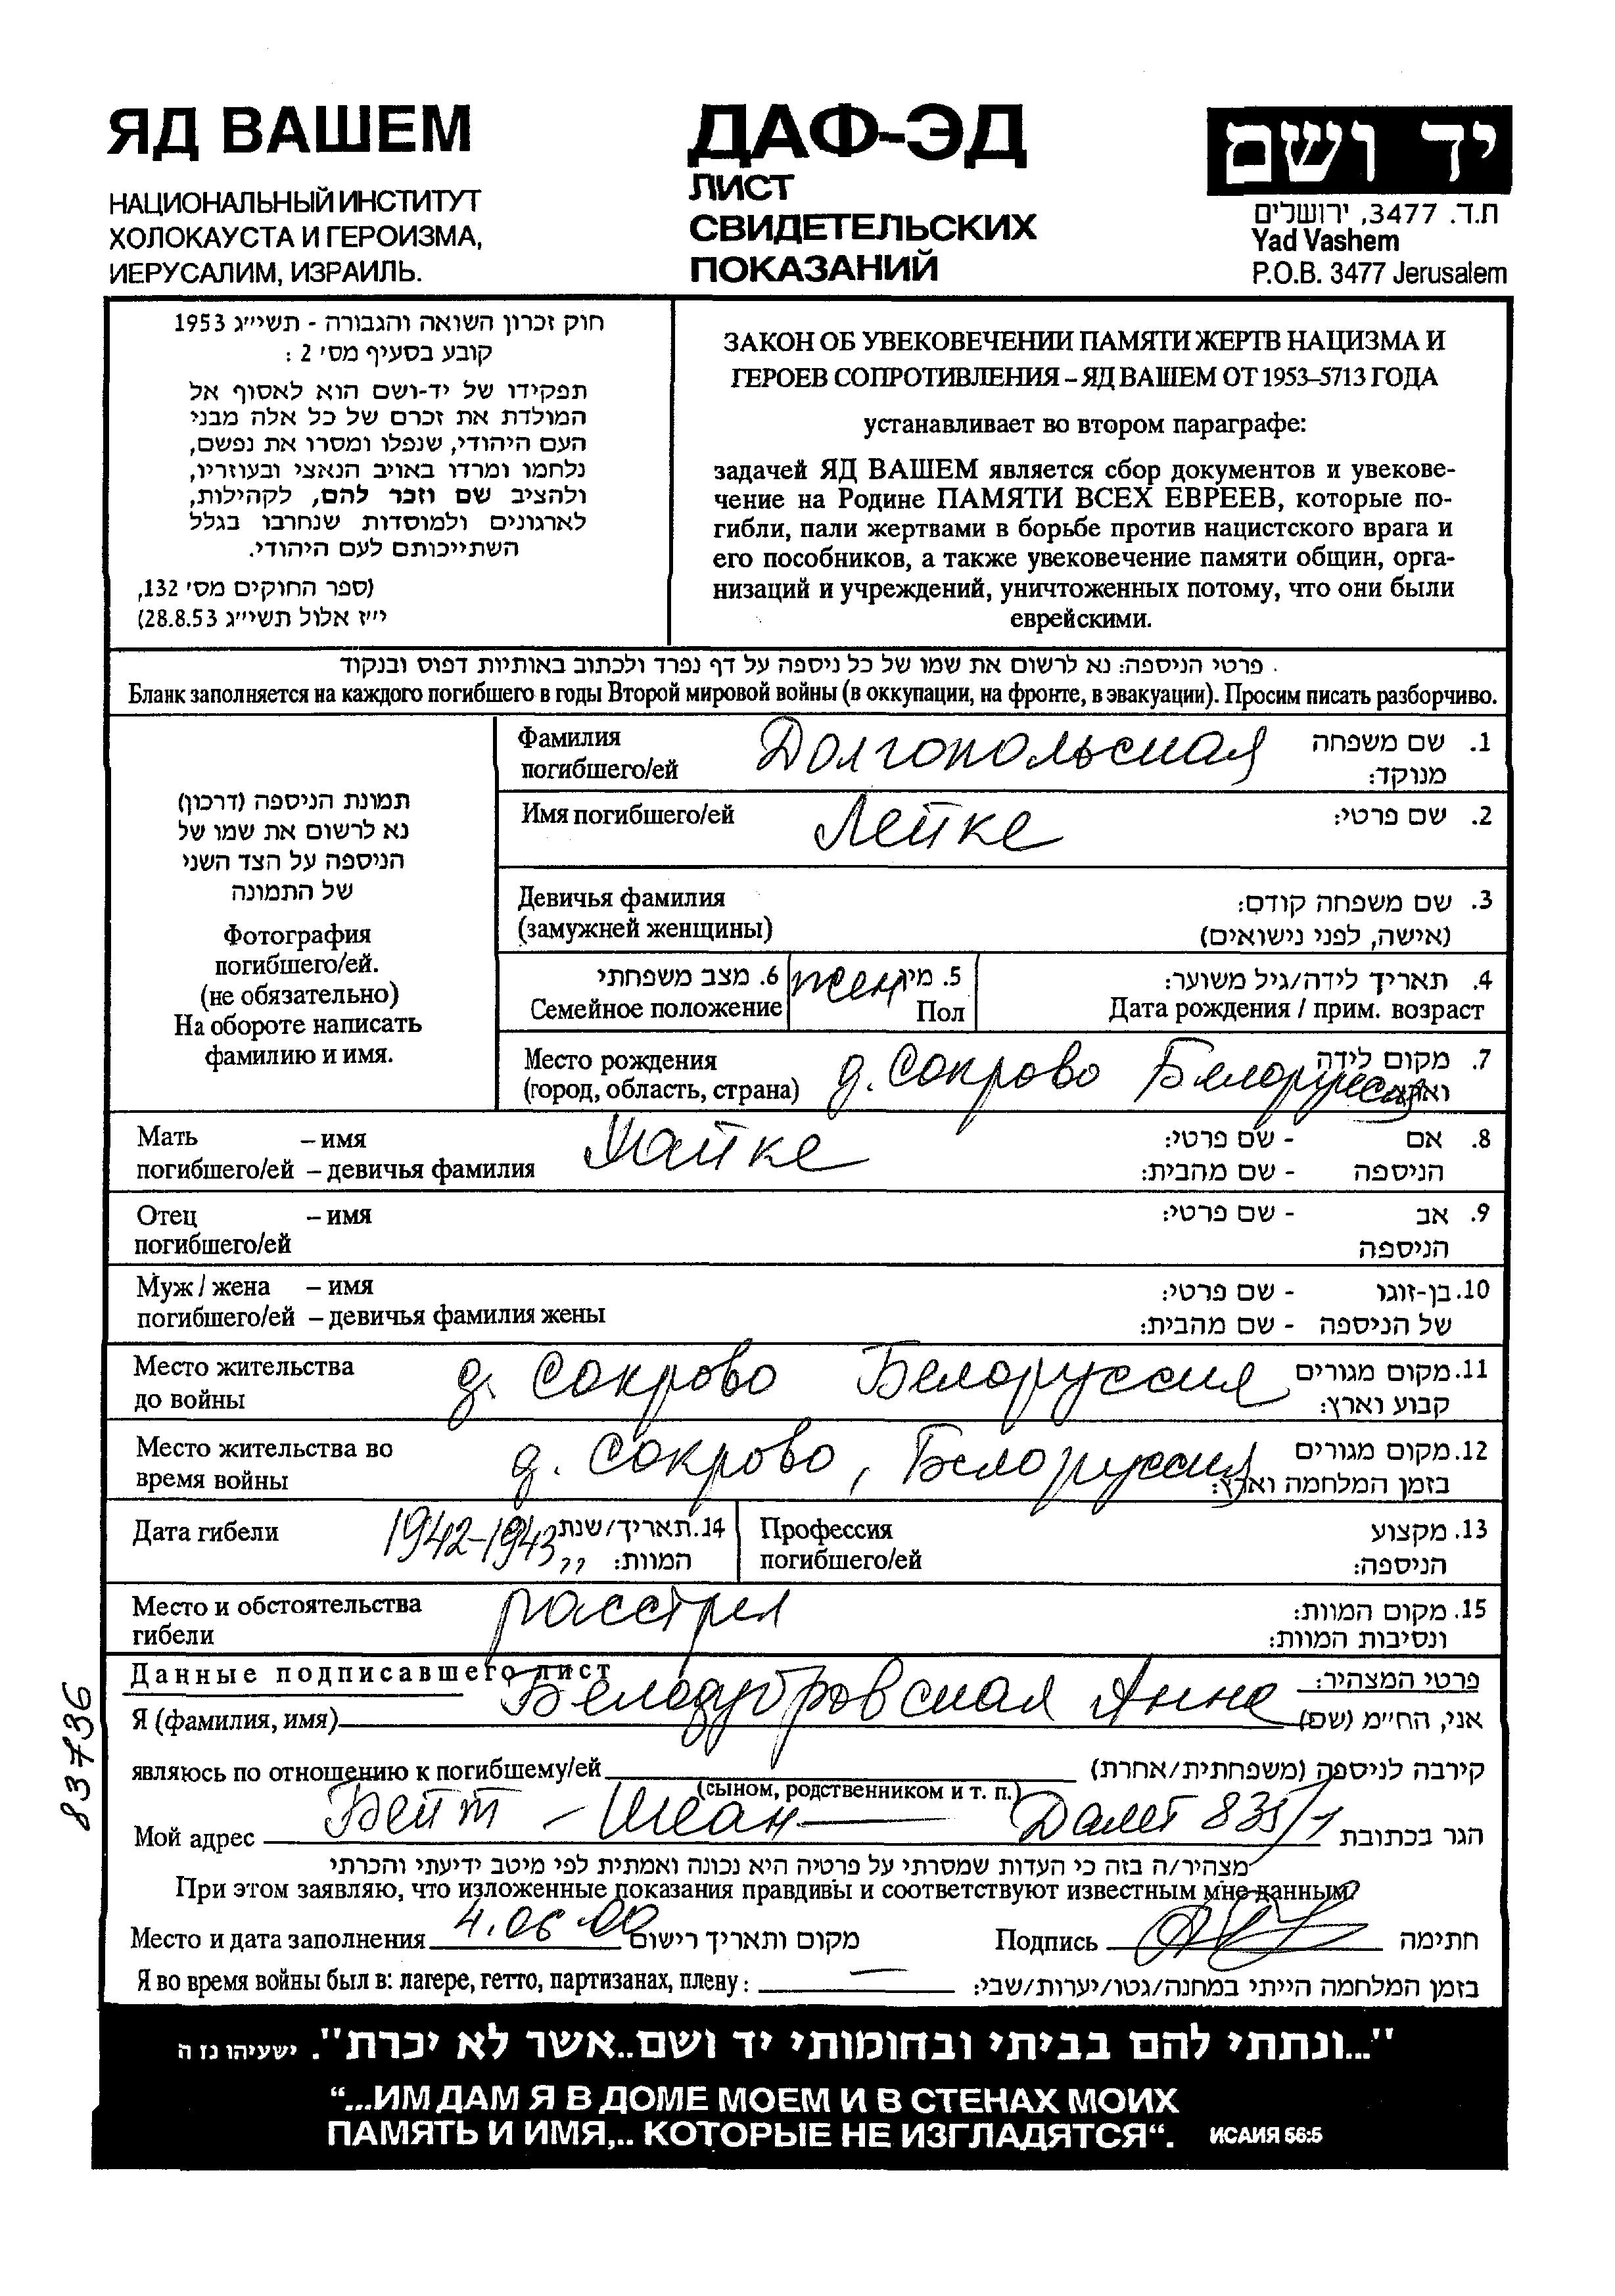 ЯД ВАШЕМ
НАЦИОНАЛЬНЫЙ ИНСТИТУТ
ХОЛОКАУСТА И ГЕРОИЗМА,
ИЕРУСАЛИМ, ИЗРАИЛЬ.
ДАФ-ЭД
ЛИСТ
СВИДЕТЕЛЬСКИХ
ПОКАЗАНИЙ
יד ושם
ת.ד. 3477, ירושלים
Yad Vashem
P.O.B. 3477 Jerusalem
חוק זכרון השואה והגבורה - תשי״ג 1953
קובע בסעיף מס׳ 2 :
תפקידו של יד-ושם הוא לאסוף אל
המולדת את זכרם של כל אלה מבני
העם היהודי, שנפלו ומסרו את נפשם,
נלחמו ומרדו באויב הנאצי ובעוזריו,
ולהציב שם וזכר להם, לקהילות,
לארגונים ולמוסדות שנחרבו בגלל
השתייכותם לעם היהודי.
(ספר החוקים מס׳ 132,
י״ז אלול תשי״ג 28.8.53)
ЗАКОН ОБ УВЕКОВЕЧЕНИИ ПАМЯТИ ЖЕРТВ НАЦИЗМА И
ГЕРОЕВ СОПРОТИВЛЕНИЯ – ЯД ВАШЕМ ОТ 1953–5713 ГОДА
устанавливает во втором параграфе:
задачей ЯД ВАШЕМ является сбор документов и увекове-
чение на Родине ПАМЯТИ ВСЕХ ЕВРЕЕВ, которые по-
гибли, пали жертвами в борьбе против нацистского врага и
его пособников, а также увековечение памяти общин, орга-
низаций и учреждений, уничтоженных потому, что они были
еврейскими.
פרטי הניספה: נא לרשום את שמו של כל ניספה על דף נפרד ולכתוב באותיות דפוס ובנקוד
Бланк заполняется на каждого погибшего в годы Второй мировой войны (в оккупации, на фронте, в эвакуации). Просим писать разборчиво.
תמונת הניספה (דרכון)
נא לרשום את שמו של
הניספה על הצד השני
של התמונה
Фотография
погибшего/ей.
(не обязательно)
На обороте написать
фамилию и имя.
Фамилия Долгопольская 1. שם משפחה
погибшего/ей מנוקד:
Имя погибшего/ей Лейке 2. שם פרטי:
Девичья фамилия 3. שם משפחה קודם:
(замужней женщины) (אישה, לפני נישואים)
6. מצב משפחתי жен 5. מין 4. תאריך לידה/גיל משוער:
Семейное положение Пол Дата рождения / прим. возраст
Место рождения д. Сокрово Белоруссия 7. מקום לידה
(город, область, страна)
Мать – имя Майке 8. אם - שם פרטי:
погибшего/ей – девичья фамилия הניספה - שם מהבית:
Отец – имя 9. אב - שם פרטי:
погибшего/ей הניספה
Муж / жена – имя 10. בן-זוגו - שם פרטי:
погибшего/ей – девичья фамилия жены של הניספה - שם מהבית:
Место жительства д. Сокрово Белоруссия 11. מקום מגורים
до войны קבוע וארץ:
Место жительства во д. Сокрово, Белоруссия 12. מקום מגורים
время войны בזמן המלחמה וארץ:
Дата гибели 1942-1943 14. תאריך/שנת Профессия 13. מקצוע
המוות: погибшего/ей הניספה:
Место и обстоятельства расстрел 15. מקום המוות:
гибели ונסיבות המוות:
Данные подписавшего лист פרטי המצהיר:
Я (фамилия, имя) Белодубровская Анна אני, הח״מ (שם)
являюсь по отношению к погибшему/ей קירבה לניספה (משפחתית/אחרת)
(сыном, родственником и т. п.)
Мой адрес Бейт - Шеан Далет 835/1 הגר בכתובת
מצהיר/ה בזה כי העדות שמסרתי על פרטיה היא נכונה ואמתית לפי מיטב ידיעתי והכרתי
При этом заявляю, что изложенные показания правдивы и соответствуют известным мне данным.
Место и дата заполнения 4.06 00 מקום ותאריך רישום Подпись חתימה
Я во время войны был в: лагере, гетто, партизанах, плену: — בזמן המלחמה הייתי במחנה/גטו/יערות/שבי:
83736
"...ונתתי להם בביתי ובחומותי יד ושם..אשר לא יכרת". ישעיהו נז ה
“...ИМ ДАМ Я В ДОМЕ МОЕМ И В СТЕНАХ МОИХ
ПАМЯТЬ И ИМЯ,.. КОТОРЫЕ НЕ ИЗГЛАДЯТСЯ“. ИСАИЯ 56:5